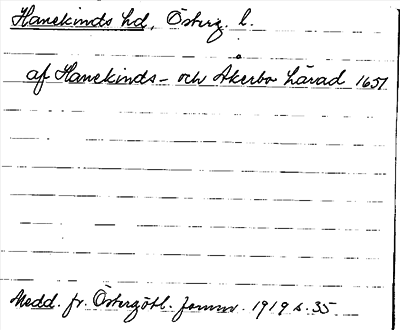 Hanekinds hd, Österg. l.
af Hanekinds- och Åkerbo härad 1651.
Medd. fr. Östergötl. fornm. 1919 s. 35